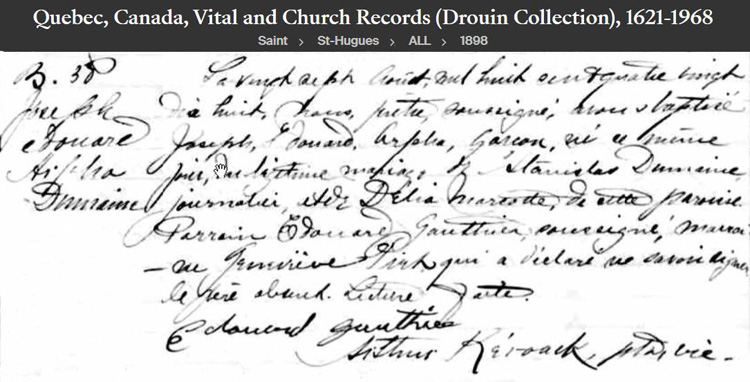 Quebec, Canada, Vital and Church Records (Drouin Collection), 1621-1968
Saint > St-Hugues > ALL > 1898
B. 38
Joseph
Edouard
Alpha
Dumaine
Le vingt sept Août, mil huit cent quatre vingt
dix huit, nous, prêtre, soussigné, avons baptisé
Joseph, Edouard, Arpha, Garçon, né ce même
jour, du légitime mariage de Stanislas Dumaine
journalier, et de Délia Marcotte, de cette paroisse
Parrain Edouard Gauthier, soussigné, marrai-
-ne Geneviève qui a déclaré ne savoir signer
le père absent. Lecture faite.
Edouard Gauthier
Arthur Kérouack, ptre, vic.